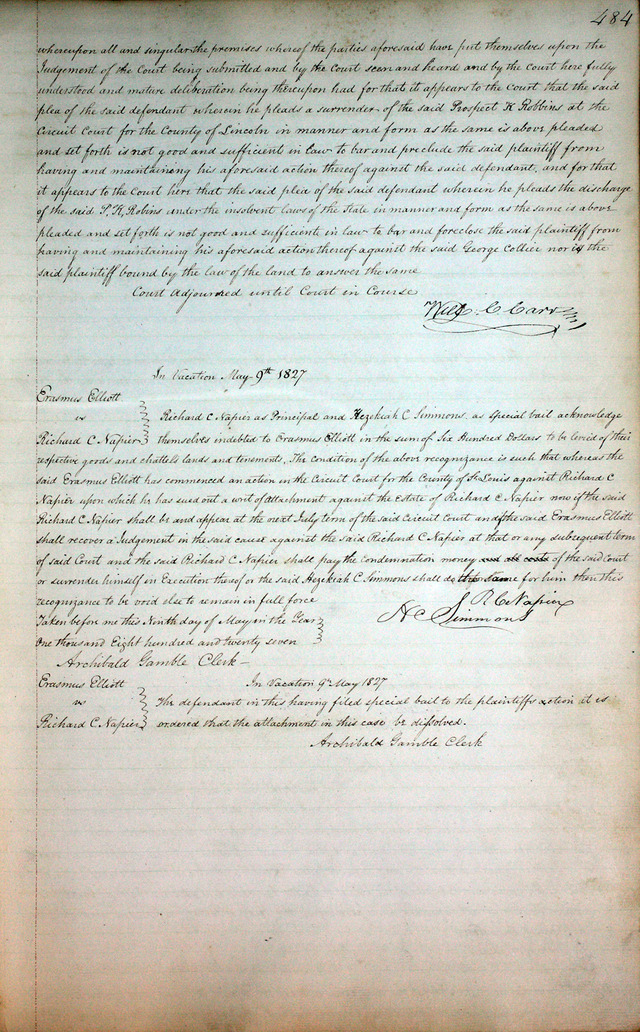 484
whereupon all and singular the premises whereof the parties aforesaid have put themselves upon the
Judgement of the Court being submitted and by the Court seen and heard and by the Court here fully
understood and mature deliberation being thereupon had for that it appears to the Court that the said
plea of the said defendant wherein he pleads a surrender of the said Prospect K Robbins at the
Circuit Court for the County of Lincoln in manner and form as the same is above pleaded
and set forth is not good and sufficient in law to bar and preclude the said plaintiff from
having and maintaining his aforesaid action thereof against the said defendant, and for that
it appears to the Court here that the said plea of the said defendant wherein he pleads the discharge
of the said P. K. Robins under the insolvent laws of the State in manner and form as the same is above
pleaded and set forth is not good and sufficient in law to bar and foreclose the said plaintiff from
having and maintaining his aforesaid action thereof against the said George Collier nor is the
said plaintiff bound by the law of the land to answer the same
Court adjourned until Court in Course
Will. C. Carr
In Vacation May 9th 1827
Erasmus Elliott
vs
Richard C Napier as Principal and Hezekiah C Simmons, as special bail acknowledge
Richard C Napier themselves indebted to Erasmus Elliott in the sum of Six Hundred Dollars to be levied of their
respective goods and chattels lands and tenements, The condition of the above recognizance is such that whereas the
said Erasmus Elliott has commenced an action in the Circuit Court for the County of St Louis against Richard C
Napier upon which he has sued out a writ of attachment against the Estate of Richard C Napier now if the said
Richard C Napier shall be and appear at the next July term of the said Circuit Court and if the said Erasmus Elliott
shall recover a Judgement in the said cause against the said Richard C Napier at that or any subsequent term
of said Court and the said Richard C Napier shall pay the condemnation money and all costs of the said Court
or surrender himself in Execution thereof or the said Hezekiah C Simmons shall do the same for him then this
recognizance to be void else to remain in full force
R C Napier
Taken before me this Ninth day of May in the Year
H C Simmons
One thousand Eight hundred and twenty seven
Archibald Gamble Clerk
Erasmus Elliott
In Vacation 9th May 1827
vs
The defendant in this having filed special bail to the plaintiffs action it is
Richard C Napier ordered that the attachment in this case be dissolved.
Archibald Gamble Clerk